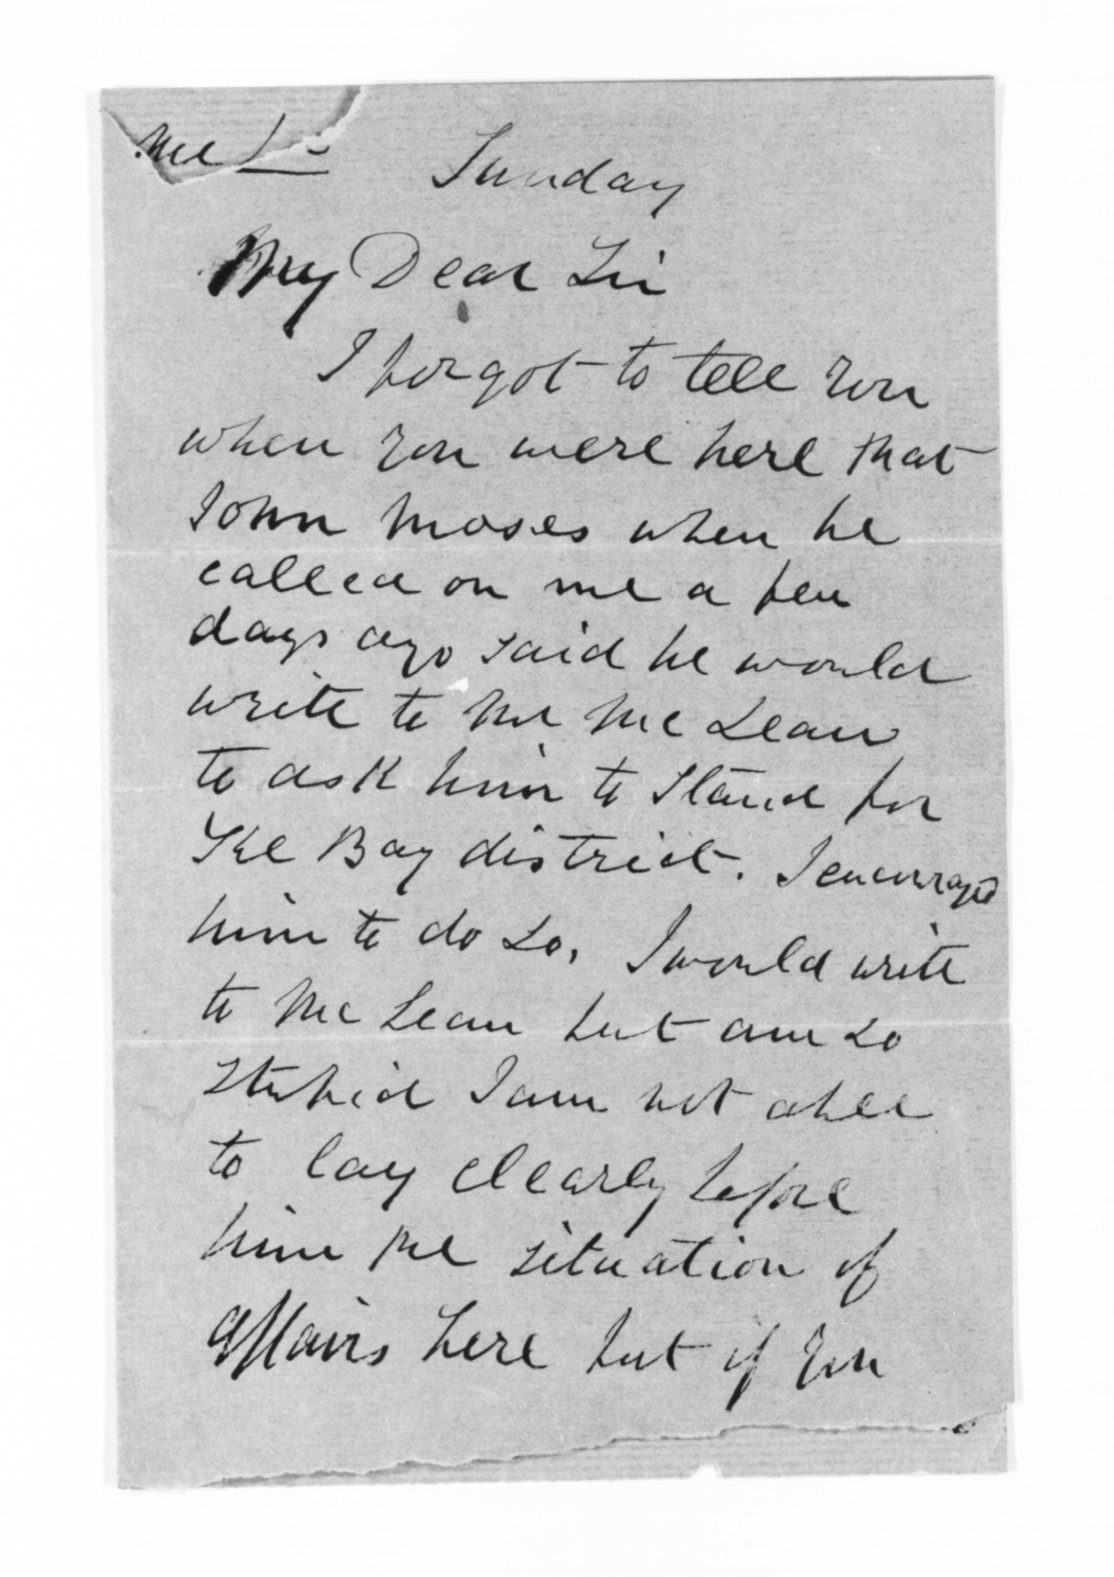 McL
Sunday
My Dear Sir
I forgot to tell you
when you were here that
John Moses when he
called on me a few
days ago said he would
write to Mr McLean
to ask him to stand for
The Bay district. I encouraged
him to do so, I would write
to McLean but am so
stupid I am not able
to lay clearly before
him the situation of
affairs here but if you